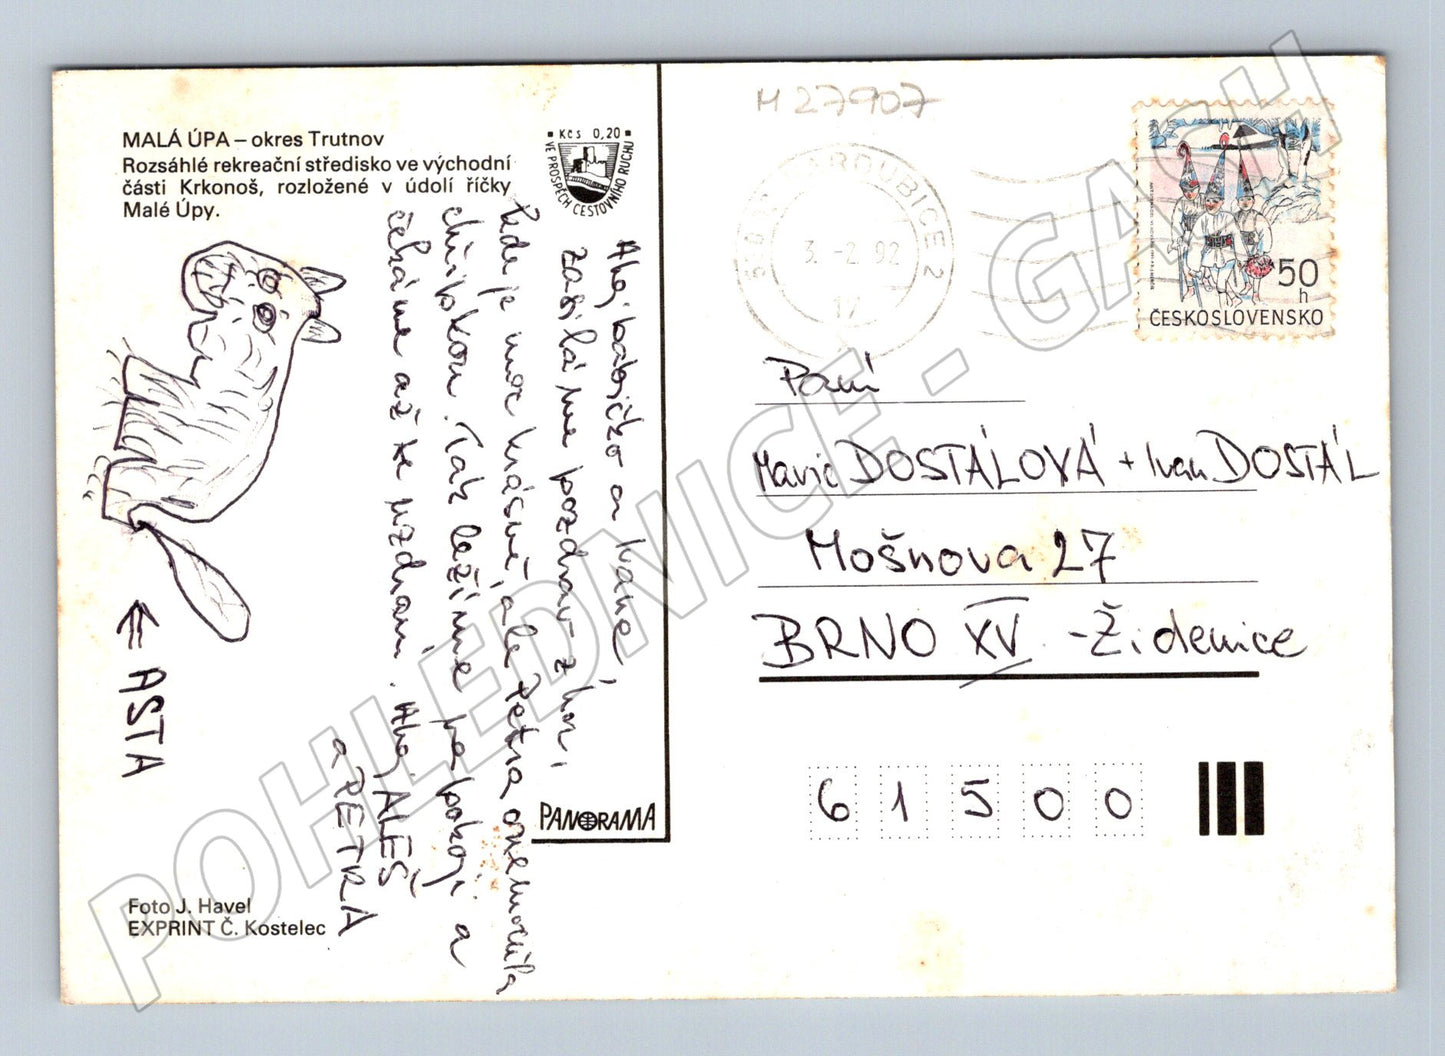 MALÁ ÚPA – okres Trutnov
Rozsáhlé rekreační středisko ve východní
části Krkonoš, rozložené v údolí říčky
Malé Úpy.
Kčs 0,20
VE PROSPĚCH CESTOVNÍHO RUCHU
Ahoj babičko a Ivane,
zasíláme pozdrav z hor,
kde je moc krásně, ale Petra onemocněla
chřipkou. Tak ležíme na pokoji a
čekáme až se uzdraví. Ahoj ALEŠ
a PETRA
← ASTA
PANORAMA
Foto J. Havel
EXPRINT Č. Kostelec
M 27907
PARDUBICE 2
3.-2.92
17
50 h
ČESKOSLOVENSKO
Paní
Marie DOSTÁLOVÁ + Ivan DOSTÁL
Mošnova 27
BRNO XV - Židenice
6 1 5 0 0
POHLEDNICE - GASH